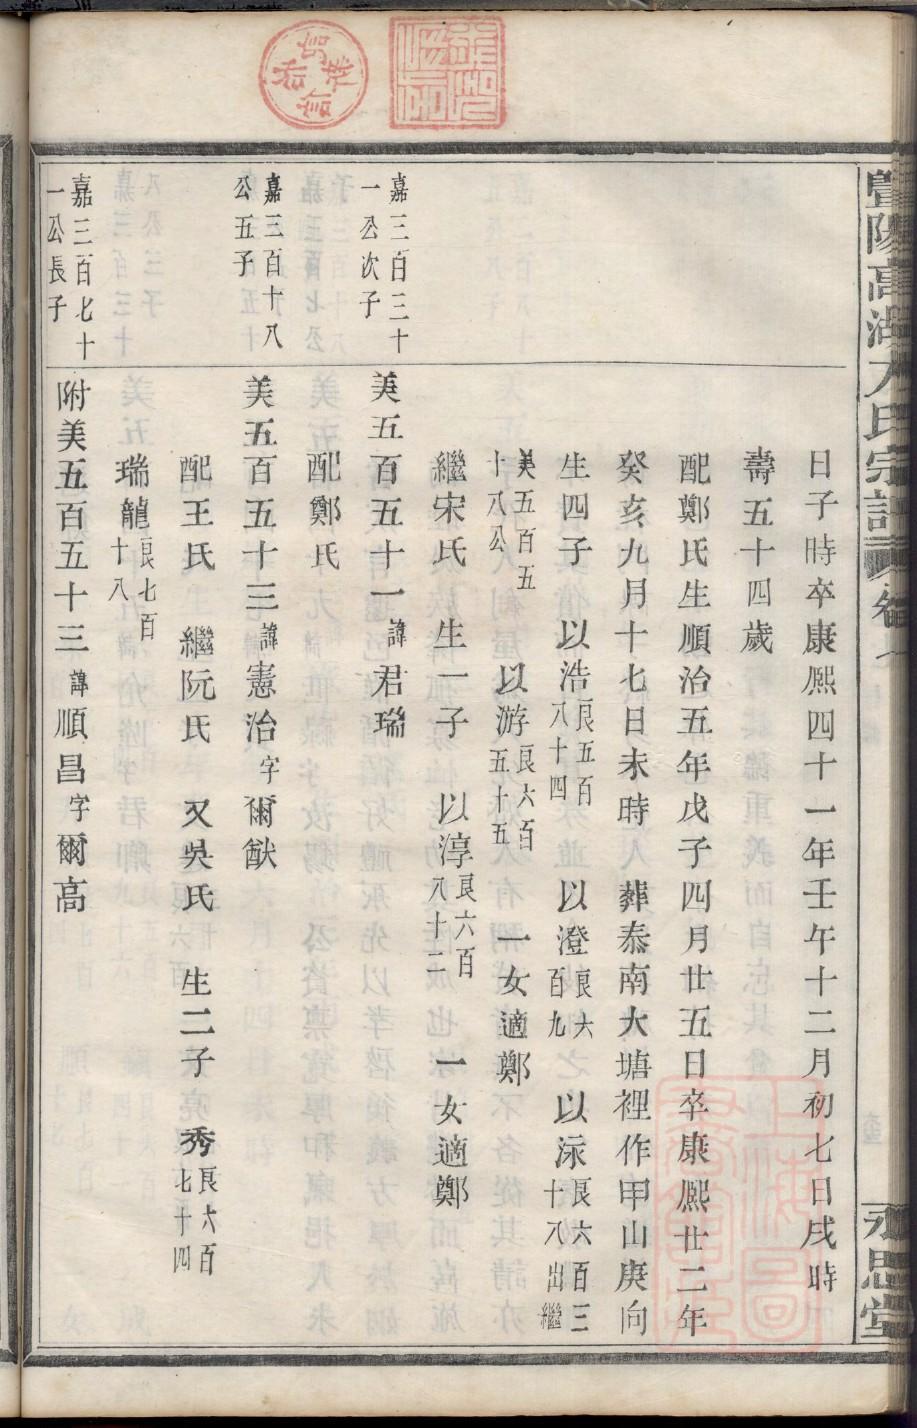 暨陽高湖方氏宗譜 卷
永思堂
日子時卒康熙四十一年壬午十二月初七日戌時
壽五十四歲
配鄭氏生順治五年戊子四月廿五日卒康熙廿二年
癸亥九月十七日未時 葬泰南大塘裡作甲山庚向
生四子 以浩良五百八十四 以澄良六百九 以泳良六百三十八出繼
美五百五十八公 以游良六百五十五 一女適鄭
繼宋氏 生一子 以淳良六百八十二 一女適鄭
嘉三百三十一公次子
美五百五十一諱君瑞
配鄭氏
嘉三百十八公五子
美五百五十三諱憲治字爾猷
配王氏 繼阮氏 又吳氏 生二子 秀良六百七十四
瑞龍良七百十八
嘉三百七十一公長子
附美五百五十三諱順昌字爾高